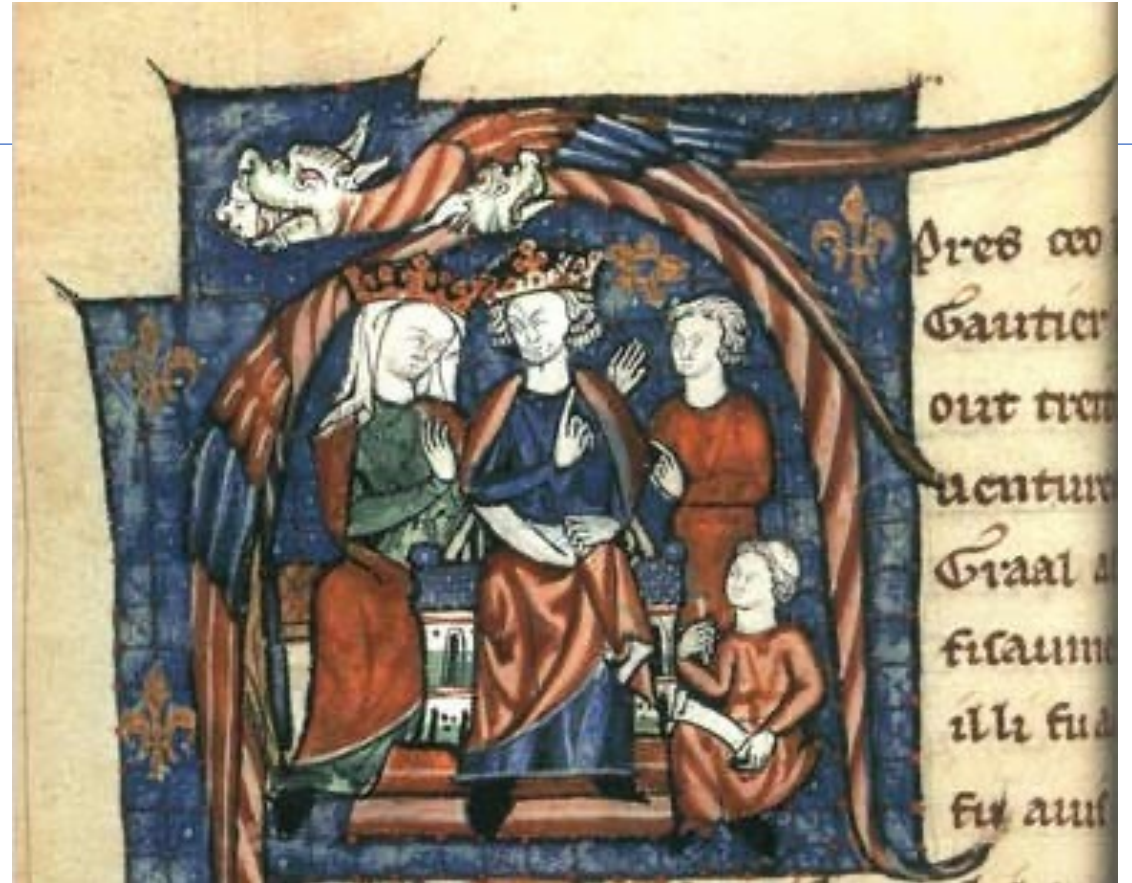 Pres ceo
Gautier
out tren
uenture
Graal a
fisaume
illi fu a
fu auis